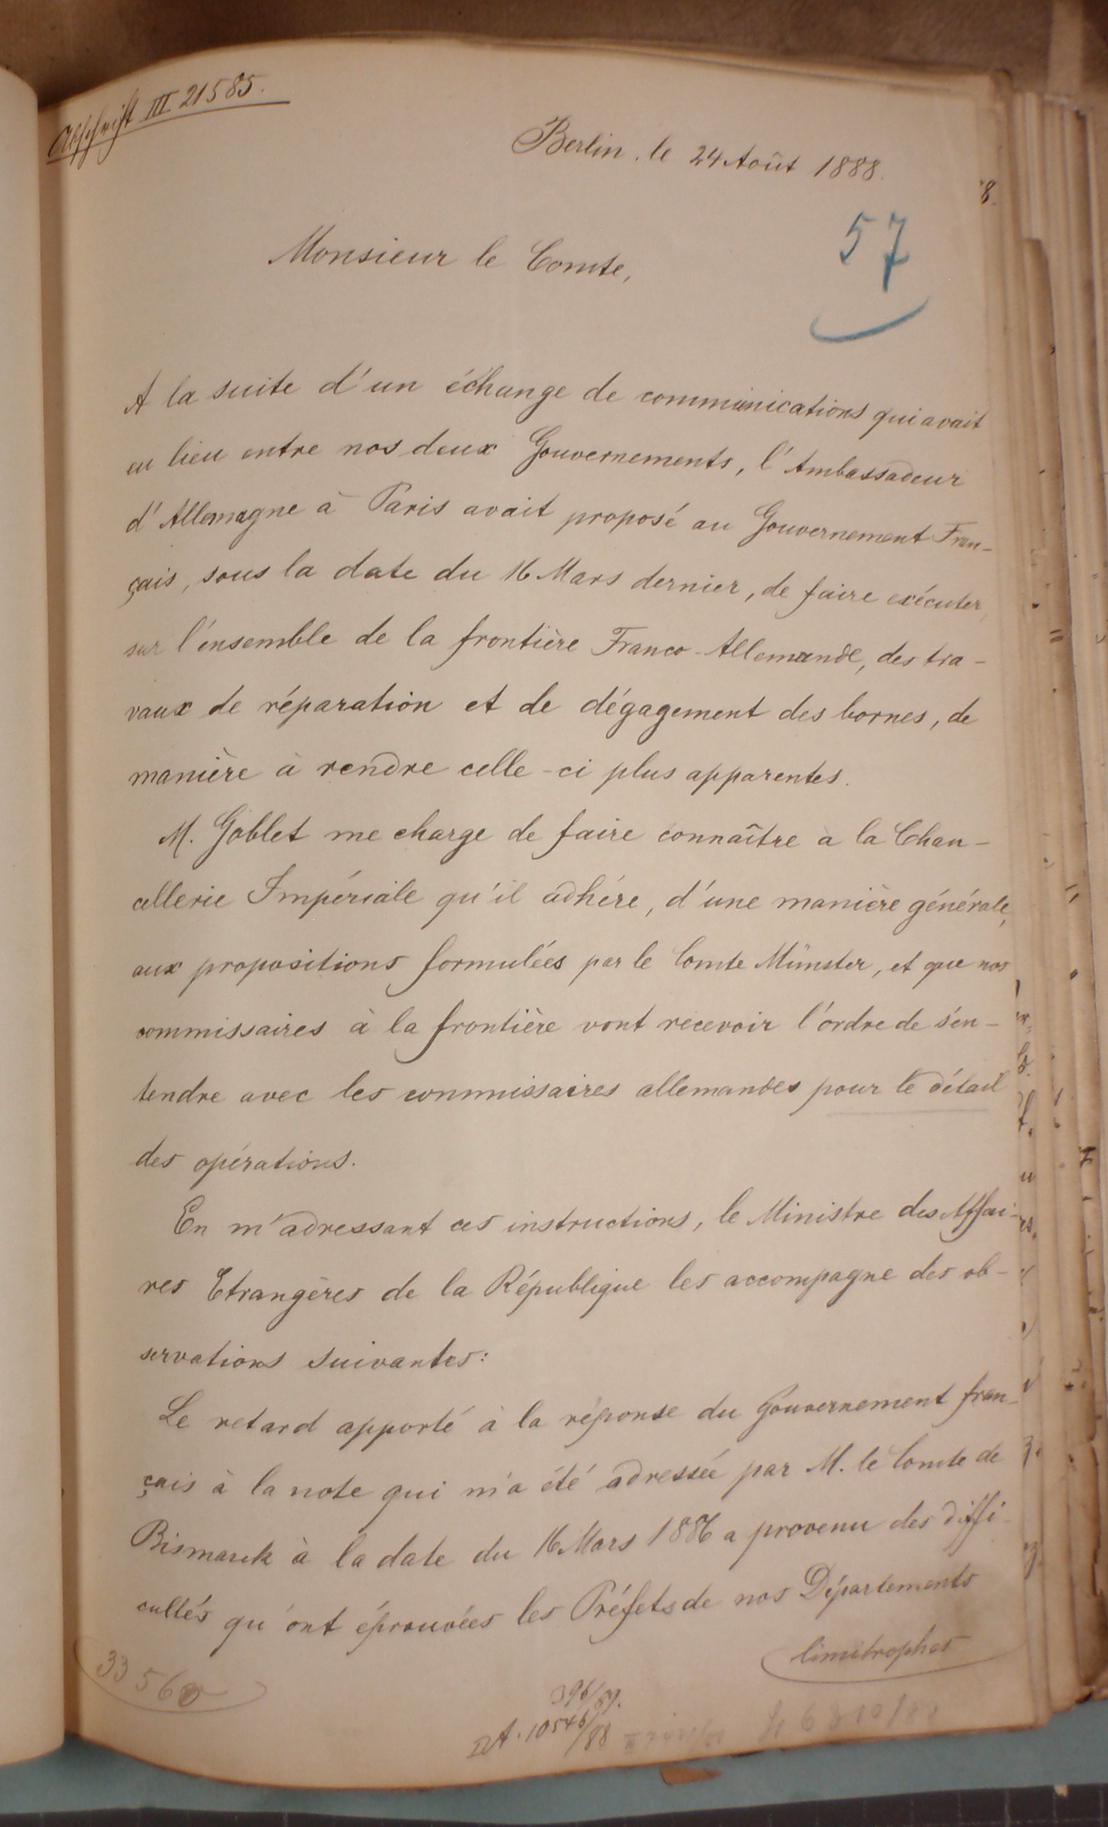 Abschrift III 21585.
Berlin, le 24 Août 1888.
57
Monsieur le Comte,
A la suite d'un échange de communications qui avait
eu lieu entre nos deux Gouvernements, l'Ambassadeur
d'Allemagne à Paris avait proposé au Gouvernement Fran-
çais, sous la date du 16 Mars dernier, de faire exécuter,
sur l'ensemble de la frontière Franco-Allemande, des tra-
vaux de réparation et de dégagement des bornes, de
manière à rendre celle-ci plus apparentes.
M. Goblet me charge de faire connaître à la Chan-
cellerie Impériale qu'il adhére, d'une manière générale,
aux propositions formulées par le Comte Münster, et que nos
commissaires à la frontière vont recevoir l'ordre de s'en-
tendre avec les commissaires allemandes pour le détail
des opérations.
En m'adressant ces instructions, le Ministre des Affai-
res Etrangères de la République les accompagne des ob-
servations suivantes:
Le retard apporté à la réponse du Gouvernement fran-
çais à la note qui m'a été adressée par M. le Comte de
Bismarck à la date du 16 Mars a provenu des diffi-
cultés qu'ont éprouvées les Préfets de nos Départements
limitrophes
3356
II A. 10546/88